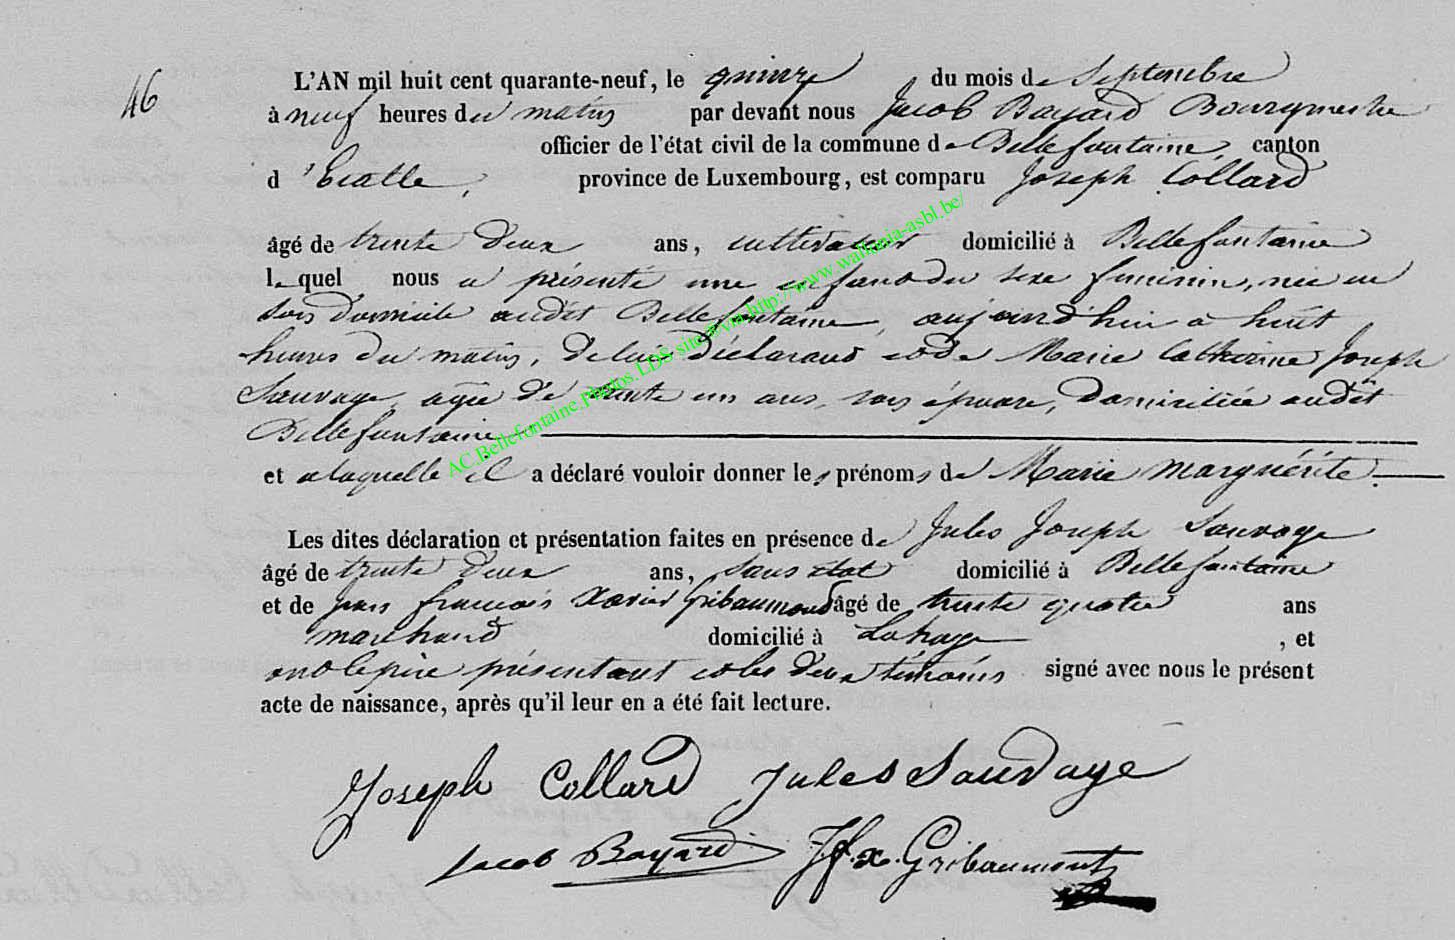 46
L'AN mil huit cent quarante-neuf, le quinze du mois de Septembre
à neuf heures du matin par devant nous Jacob Bayard Bourgmestre
officier de l'état civil de la commune de Bellefontaine, canton
d'Etalle, province de Luxembourg, est comparu Joseph Collard
âgé de trente deux ans, cultivateur domicilié à Bellefontaine
lequel nous a présenté une enfant du sexe feminin, née en
son domicile audit Bellefontaine, aujourd'hui a huit
heures du matin, de lui déclarant et de Marie Catherine Joseph
Sauvage, agée de trente un ans, son épouse, domiciliée audit
Bellefontaine
et a laquelle il a déclaré vouloir donner les prénoms de Marie Marguérite.
Les dites déclaration et présentation faites en présence de Jules Joseph Sauvage
âgé de trente deux ans, sans état domicilié à Bellefontaine
et de Jean françois Xavier Gribaumont âgé de trente quatre ans
marchand domicilié à Lahage, et
ont le père présentant et les deux témoins signé avec nous le présent
acte de naissance, après qu'il leur en a été fait lecture.
Joseph Collard Jules Sauvage
Jacob Bayard J. f. x. Gribaumont
AC.Bellefontaine.Photos.LDS site@via http://www.wallonia-asbl.be/